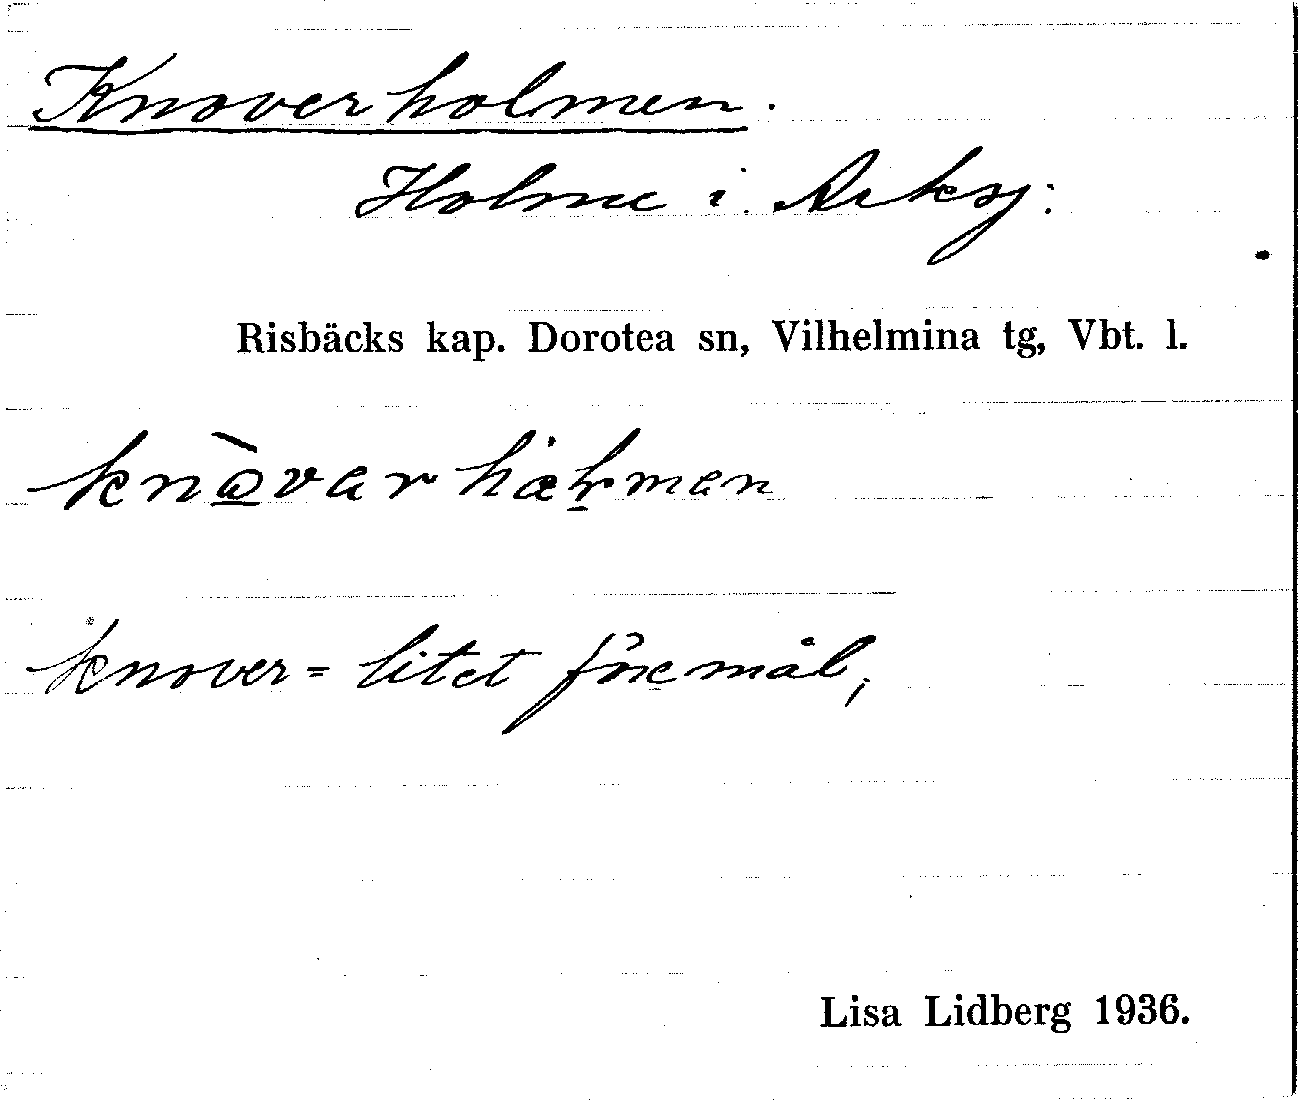 Knoverholmen.
Holme i Arksj:
Risbäcks kap. Dorotea sn, Vilhelmina tg, Vbt. l.
knover = litet föremål,
Lisa Lidberg 1936.